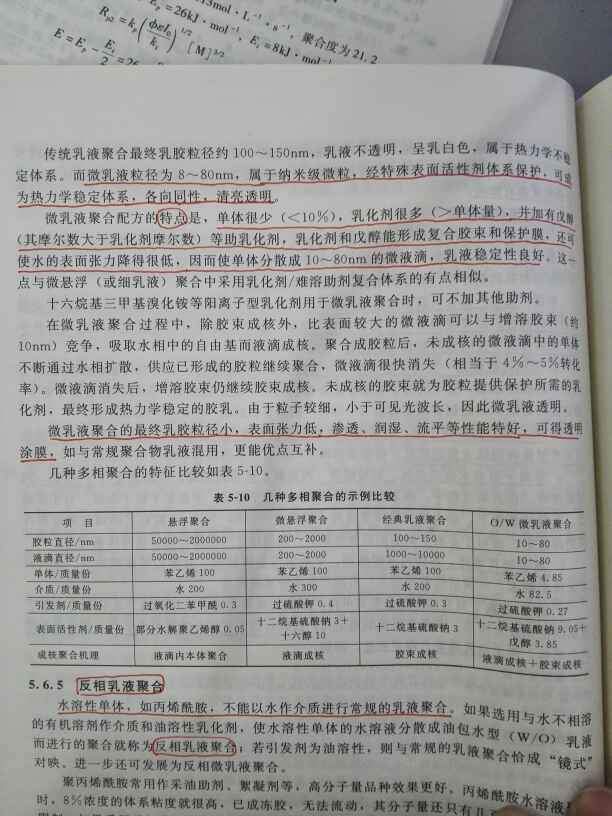 E_p=26kJ·mol⁻¹, E_t=8kJ·mol⁻
聚合度为21.2
传统乳液聚合最终乳胶粒径约100～150nm，乳液不透明，呈乳白色，属于热力学不稳
定体系。而微乳液粒径为8～80nm，属于纳米级微粒，经特殊表面活性剂体系保护，可成
为热力学稳定体系，各向同性，清亮透明。
微乳液聚合配方的特点是，单体很少（<10%），乳化剂很多（>单体量），并加有戊醇
（其摩尔数大于乳化剂摩尔数）等助乳化剂，乳化剂和戊醇能形成复合胶束和保护膜，还可
使水的表面张力降得很低，因而使单体分散成10～80nm的微液滴，乳液稳定性良好。这一
点与微悬浮（或细乳液）聚合中采用乳化剂/难溶助剂复合体系的有点相似。
十六烷基三甲基溴化铵等阳离子型乳化剂用于微乳液聚合时，可不加其他助剂。
在微乳液聚合过程中，除胶束成核外，比表面较大的微液滴可以与增溶胶束（约
10nm）竞争，吸取水相中的自由基而液滴成核。聚合成胶粒后，未成核的微液滴中的单体
不断通过水相扩散，供应已形成的胶粒继续聚合，微液滴很快消失（相当于4%～5%转化
率）。微液滴消失后，增溶胶束仍继续胶束成核。未成核的胶束就为胶粒提供保护所需的乳
化剂，最终形成热力学稳定的胶乳。由于粒子较细，小于可见光波长，因此微乳液透明。
微乳液聚合的最终乳胶粒径小，表面张力低，渗透、润湿、流平等性能特好，可得透明
涂膜，如与常规聚合物乳液混用，更能优点互补。
几种多相聚合的特征比较如表5-10。
表 5-10 几种多相聚合的示例比较
项 目 悬浮聚合 微悬浮聚合 经典乳液聚合 O/W 微乳液聚合
胶粒直径/nm 50000～2000000 200～2000 100～150 10～80
液滴直径/nm 50000～2000000 200～2000 1000～10000 10～80
单体/质量份 苯乙烯 100 苯乙烯 100 苯乙烯 100 苯乙烯 4.85
介质/质量份 水 200 水 300 水 200 水 82.5
引发剂/质量份 过氧化二苯甲酰 0.3 过硫酸钾 0.4 过硫酸钾 0.3 过硫酸钾 0.27
表面活性剂/质量份 部分水解聚乙烯醇 0.05 十二烷基硫酸钠 3+十六醇 10 十二烷基硫酸钠 3 十二烷基硫酸钠 9.05+戊醇 3.85
成核聚合机理 液滴内本体聚合 液滴成核 胶束成核 液滴成核+胶束成核
5.6.5 反相乳液聚合
水溶性单体，如丙烯酰胺，不能以水作介质进行常规的乳液聚合。如果选用与水不相溶
的有机溶剂作介质和油溶性乳化剂，使水溶性单体的水溶液分散成油包水型（W/O）乳液
而进行的聚合就称为反相乳液聚合；若引发剂为油溶性，则与常规的乳液聚合恰成“镜式”
对映、进一步还可发展为反相微乳液聚合。
聚丙烯酰胺常用作采油助剂、絮凝剂等，高分子量品种效果更好。丙烯酰胺水溶液
时，8%浓度的体系粘度就很高，已成冻胶，无法流动，其分子量还只有几